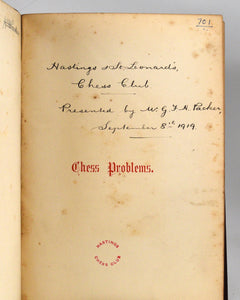 701.
Hastings & St. Leonard's,
Chess Club
Presented by Mr. G. F. H. Packer,
September 8th 1919.
Chess Problems.
HASTINGS
CHESS CLUB